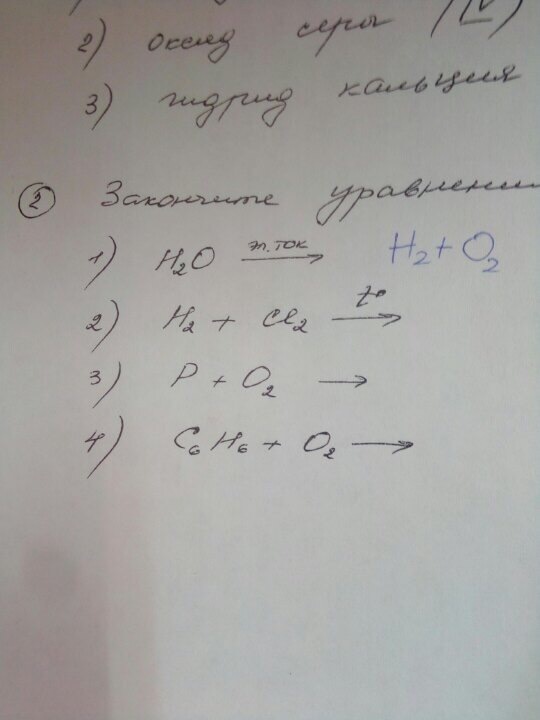 2) оксид серы (IV)
3) гидрид кальция
2 Закончите уравнения
1) H₂O эл.ток → H₂ + O₂
2) H₂ + Cl₂ t° →
3) P + O₂ →
4) C₆H₆ + O₂ →